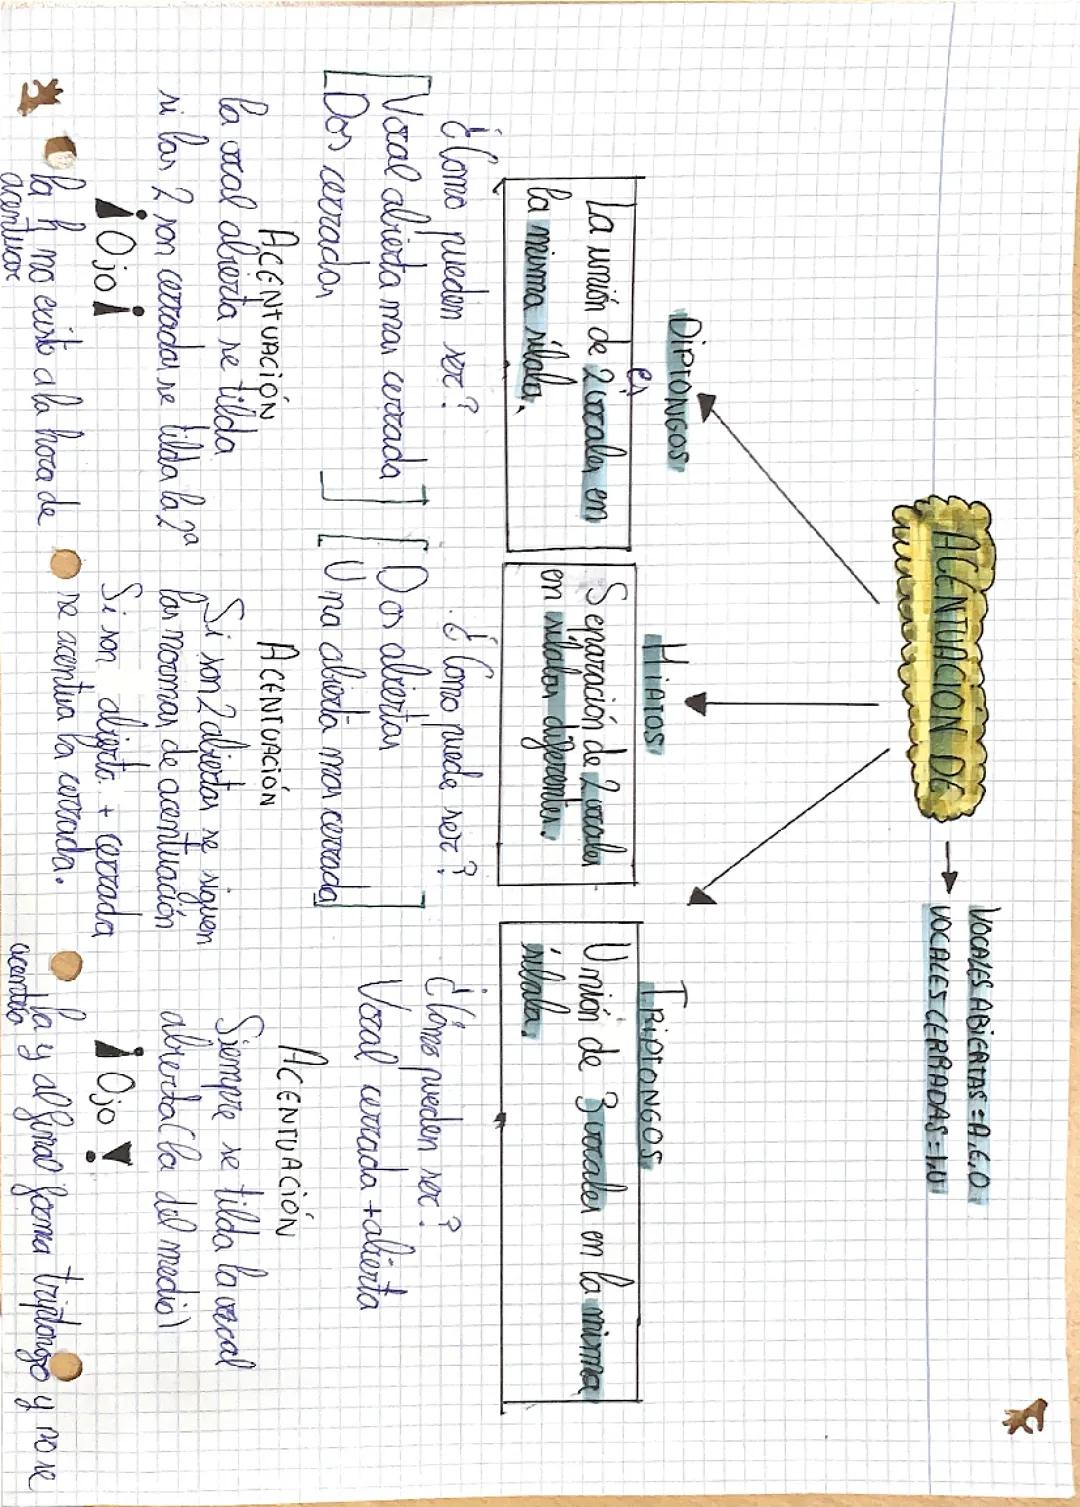 ACENTUACIÓN DE
VOCALES ABIERTAS = A, E, O
VOCALES CERRADAS = I, U
DIPTONGOS
es
La unión de 2 vocales en
la misma sílaba.
¿Cómo pueden ser?
Vocal abierta mas cerrada
Dos cerradas
ACENTUACIÓN
la vocal abierta se tilda
si las 2 son cerradas se tilda la 2ª
¡Ojo!
la h no existe a la hora de
acentuar
HIATOS
Separación de 2 vocales
en sílabas diferentes.
¿Cómo puede ser?
Dos abiertas
Una abierta mas cerrada
ACENTUACIÓN
Si son 2 abiertas se siguen
las normas de acentuación
Si son abierta + cerrada
se acentua la cerrada.
TRIPTONGOS
Unión de 3 vocales en la misma
sílaba.
¿Cómo pueden ser?
Vocal cerrada + abierta
ACENTUACIÓN
Siempre se tilda la vocal
abierta (la del medio)
¡Ojo!
la y al final forma triptongo y no se
acentúa